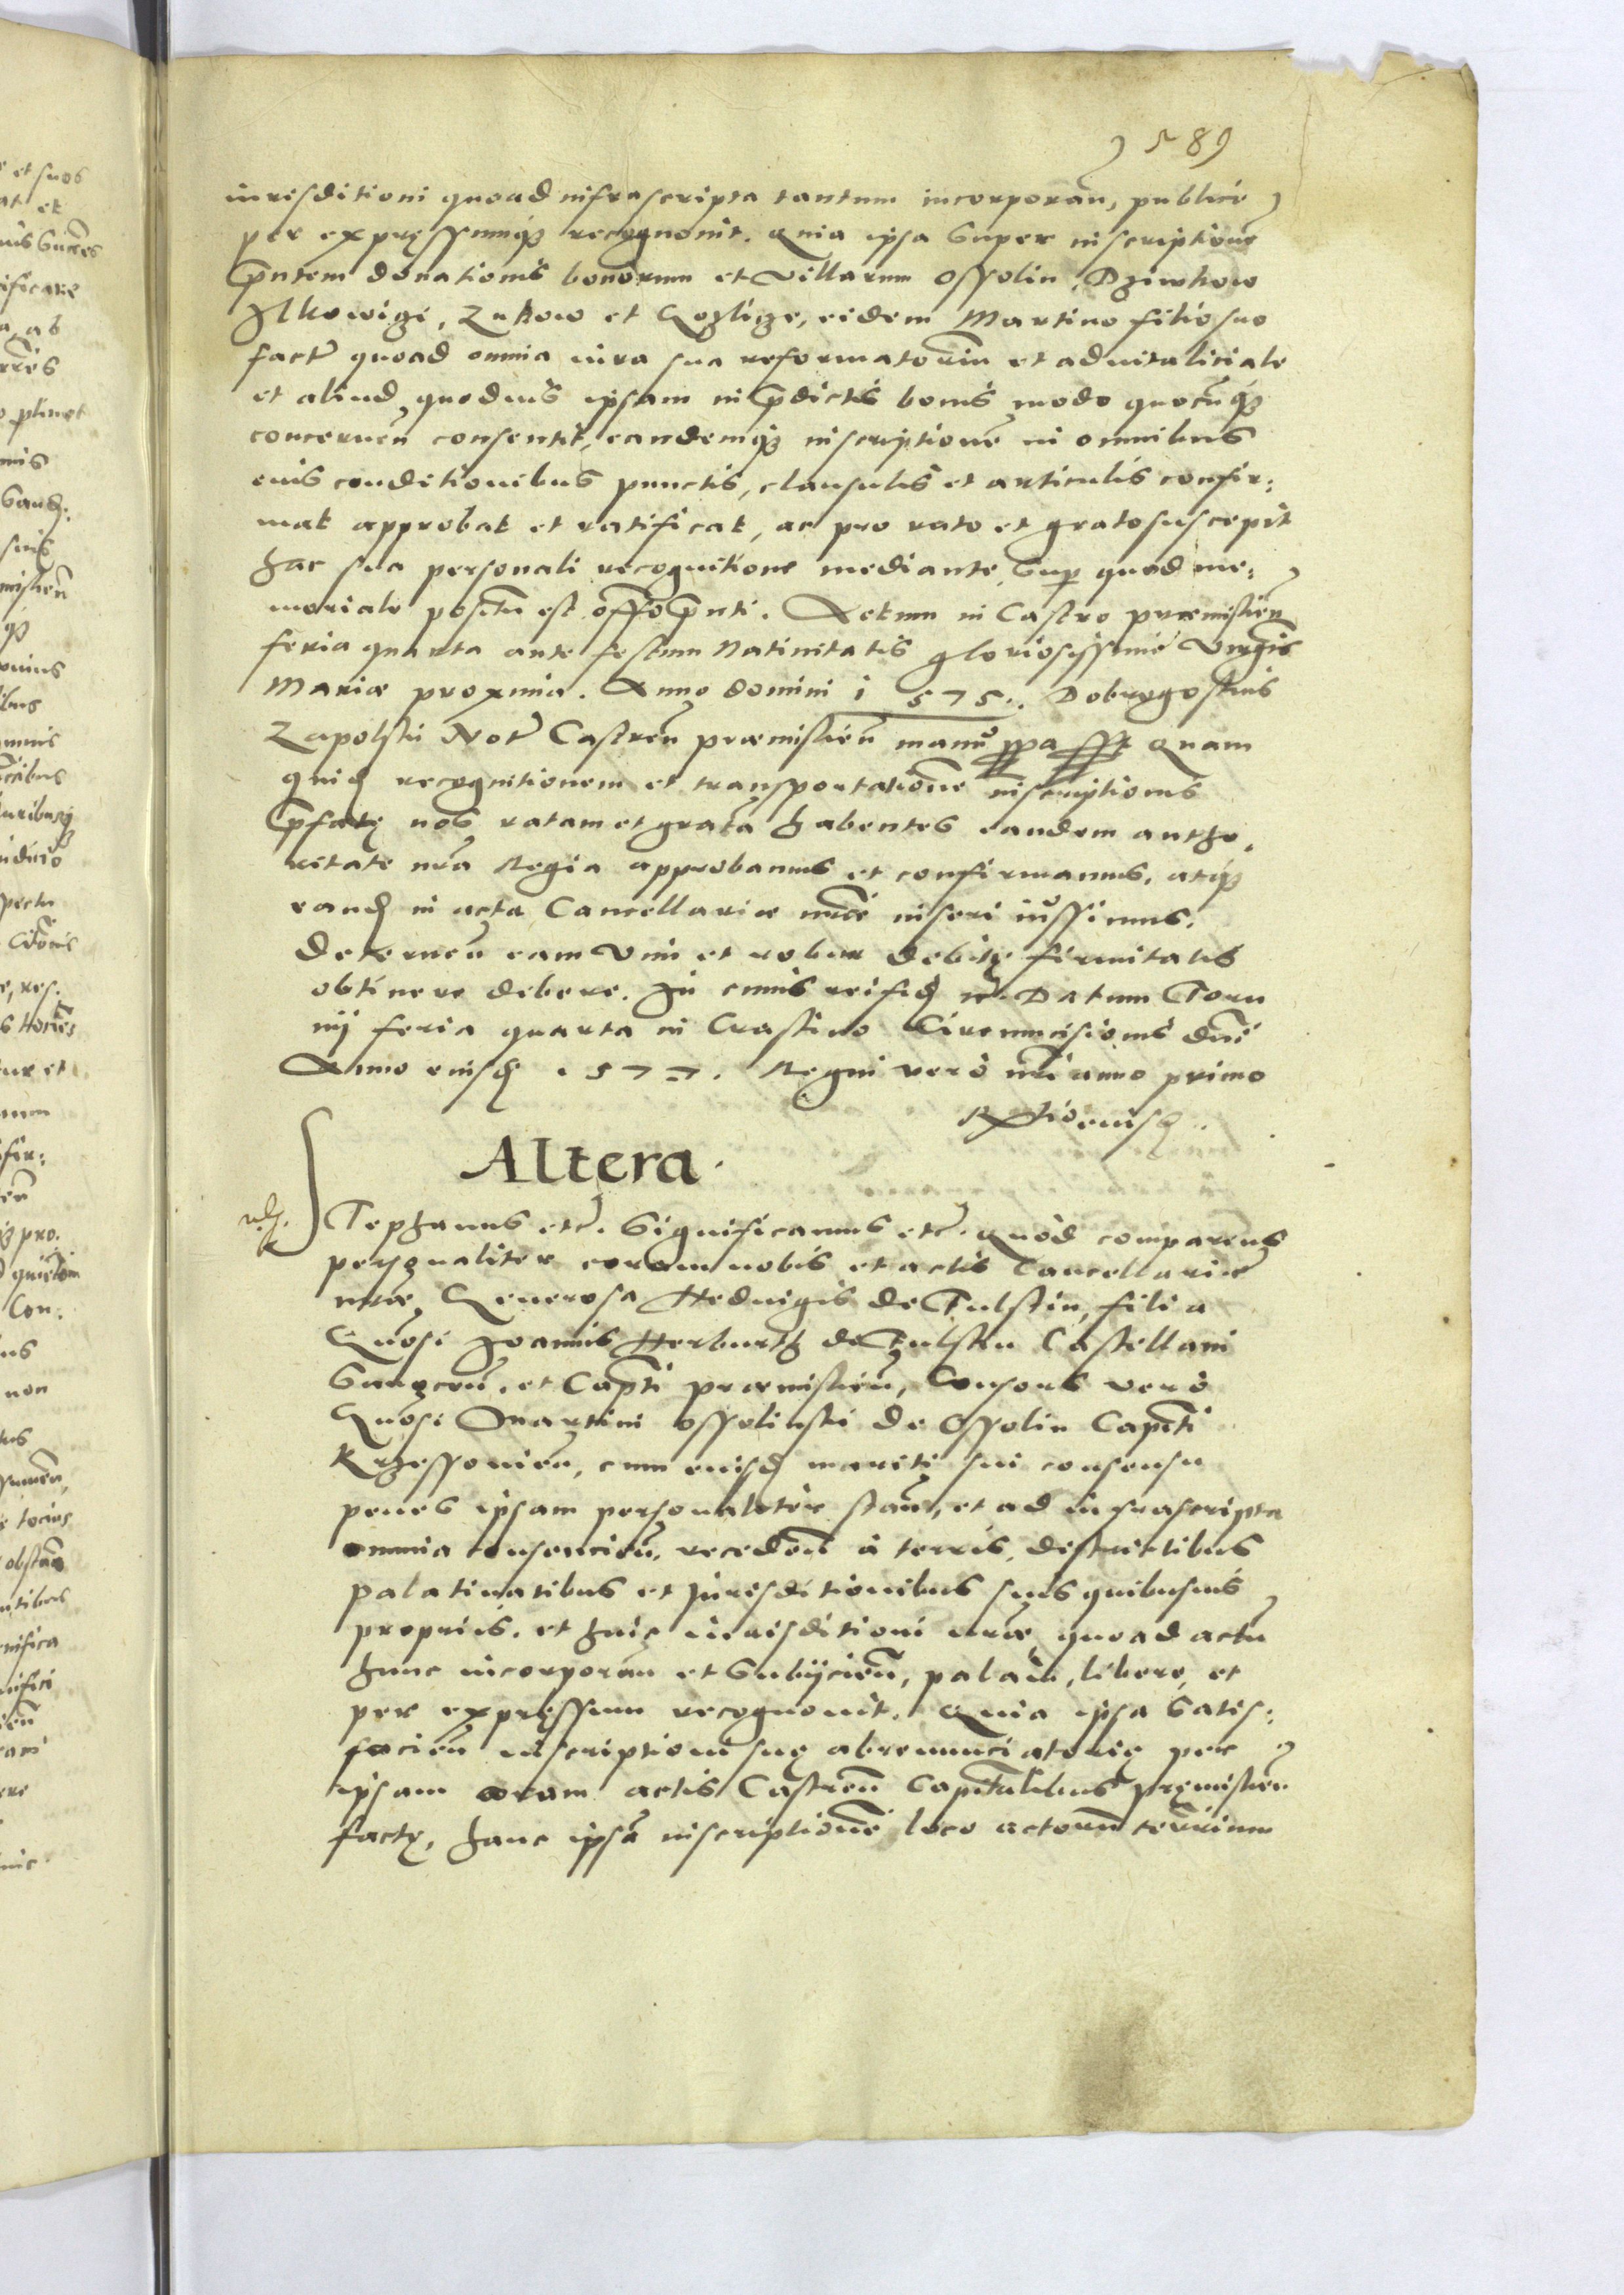 589
iurisditioni quoad infrascripta tantum incorporan̄, publice
per expręssumq̨ recognovit. Quia ipsa super inscriptione
p̄ntem donationis bonorum et villarum Ossolin, Dziwkow
Ilkowigi, Zukow et Gozlize, eidem Martino filio suo
fact̄ quoad omnia iura sua reformatoriū et advitaliciale
et aliud, quoduis ipsam in p̄dictis bonis modo quocūq̨
concernen̄ consentit, eandemq̨ inscriptionē in omnibus
eius conditionibus punctis, clausulis et articulis confir:
mat approbat et ratificat, ac pro rato et grato suscepit
hac sua personali recognitione mediante, sup̱ quod me:
moriale positū est off̄o p̄nti. Actum in Castro præmislien̄
feria quarta ante festum Nativitatis gloriosissimæ virḡis
Mariæ proxima. Anno domini 1575. Dobrogostius
Zapolski Not̄ Castren̄ præmislien̄ manu ppa sst Quam
quid̨ recognitionem et transportationē inscriptionis
p̄fatę nos ratam et gratā habentes eandem autho,
ritate nr̄a Regia approbamus et confirmamus, atq̨
eand̨ in acta Cancellariæ nr̄æ inseri iussimus.
Decernen̄ eam vim et robur debitę firmitatis
obtinere debere. In cuius rei fid̨ &. Datum Toru
nij feria quarta in Crastino Circumcisionis dn̄i
Anno eiusd̨ 1577. Regni vero nr̄i anno primo
Rx̄tio eiusd̨.
Altera.
Stephanus etc̄. Significamus etc̄. quòd comparens
personaliter coram nobis et actis Cancellariæ
nr̄æ, Generosa Hedvigis de Fulstin, filia
Gn̄osi Joannis Herburth de Fulstin Castellani
Sanocen̄. et Cap̄ti præmislien̄, Consors verò
Gn̄osi Martini Ossolinski de Ossolin Capit̄i
Krzessovien̄, cum eiusd̨ mariti sui consensu
penes ipsam personaliter stan̄, et ad infrascripta
omnia consencien̄, receden̄ à terris, districtibus
palatinatibus et Jurisditionibus suis quibusuis
propriis. et huic iurisditioni nr̄æ quoad actū
hunc incorporan̄ et subijcien̄, palàm, libere, et
per expręssum recognovit. Quia ipsa satis:
facien̄ inscriptioni suę abrenunciatorię per
ipsam coram actis Castren̄ Capit̄alibus pręmislien̄
factę, hanc ipsā inscriptionē loco actorū terr̄rium